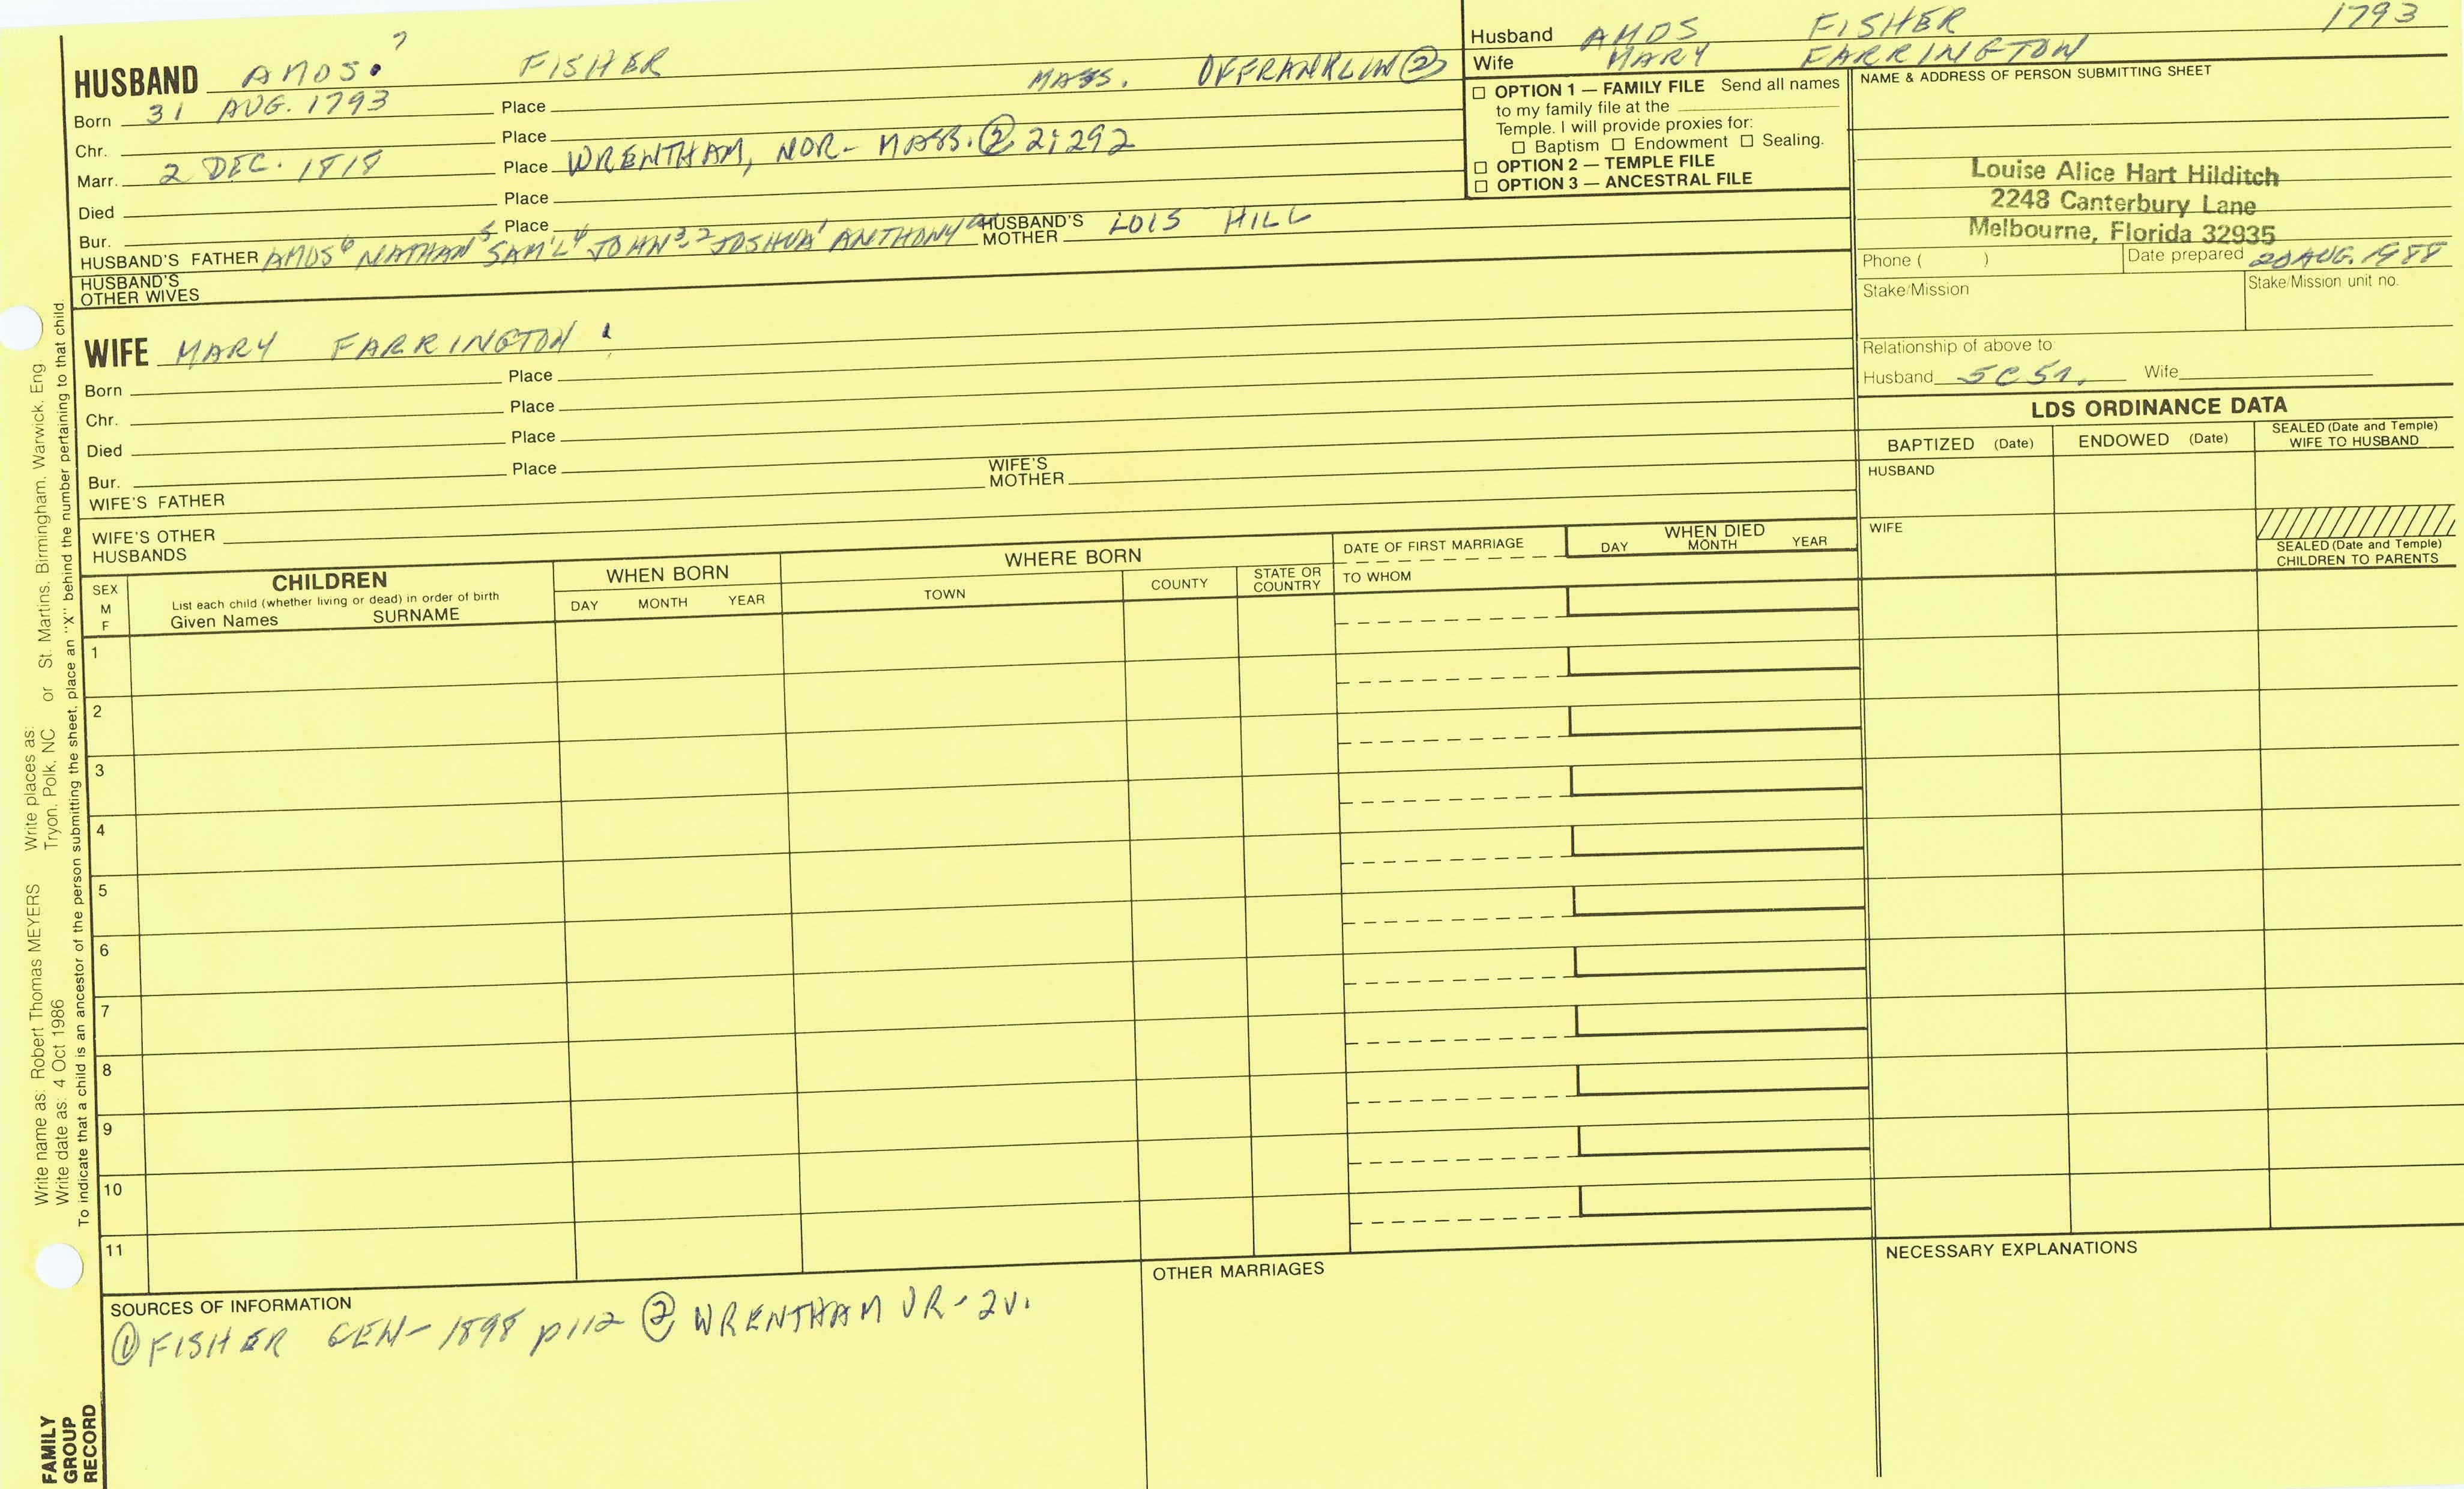 Husband AMOS FISHER 1793
Wife MARY FARRINGTON
HUSBAND AMOS 7 FISHER MASS. OF FRANKLIN ②
Born 31 AUG. 1793 Place
Chr. Place
Marr. 2 DEC. 1818 Place WRENTHAM, NOR- MASS. ② 2:292
Died Place
Bur. Place
HUSBAND'S FATHER AMOS6 NATHAN5 SAM'L4 JOHN3 2 JOSHUA1 ANTHONY HUSBAND'S MOTHER LOIS HILL
HUSBAND'S OTHER WIVES
☐ OPTION 1 — FAMILY FILE Send all names
to my family file at the
Temple. I will provide proxies for:
☐ Baptism ☐ Endowment ☐ Sealing.
☐ OPTION 2 — TEMPLE FILE
☐ OPTION 3 — ANCESTRAL FILE
NAME & ADDRESS OF PERSON SUBMITTING SHEET
Louise Alice Hart Hilditch
2248 Canterbury Lane
Melbourne, Florida 32935
Phone ( ) Date prepared 20 AUG. 1988
Stake/Mission Stake/Mission unit no.
Relationship of above to:
Husband 5C5r. Wife
WIFE MARY FARRINGTON
Born Place
Chr. Place
Died Place
Bur. Place
WIFE'S FATHER WIFE'S MOTHER
WIFE'S OTHER HUSBANDS
LDS ORDINANCE DATA
BAPTIZED (Date) ENDOWED (Date) SEALED (Date and Temple) WIFE TO HUSBAND
HUSBAND
WIFE
SEALED (Date and Temple) CHILDREN TO PARENTS
SEX M F
CHILDREN
List each child (whether living or dead) in order of birth
Given Names SURNAME
WHEN BORN
DAY MONTH YEAR
WHERE BORN
TOWN COUNTY STATE OR COUNTRY
DATE OF FIRST MARRIAGE
TO WHOM
WHEN DIED
DAY MONTH YEAR
1
2
3
4
5
6
7
8
9
10
11
SOURCES OF INFORMATION
① FISHER GEN- 1898 p112 ② WRENTHAM VR- 2v.
OTHER MARRIAGES
NECESSARY EXPLANATIONS
Write name as: Robert Thomas MEYERS Write places as: Tryon, Polk, NC or St. Martins, Birmingham, Warwick, Eng
Write date as: 4 Oct 1986
To indicate that a child is an ancestor of the person submitting the sheet, place an "X" behind the number pertaining to that child.
FAMILY
GROUP
RECORD